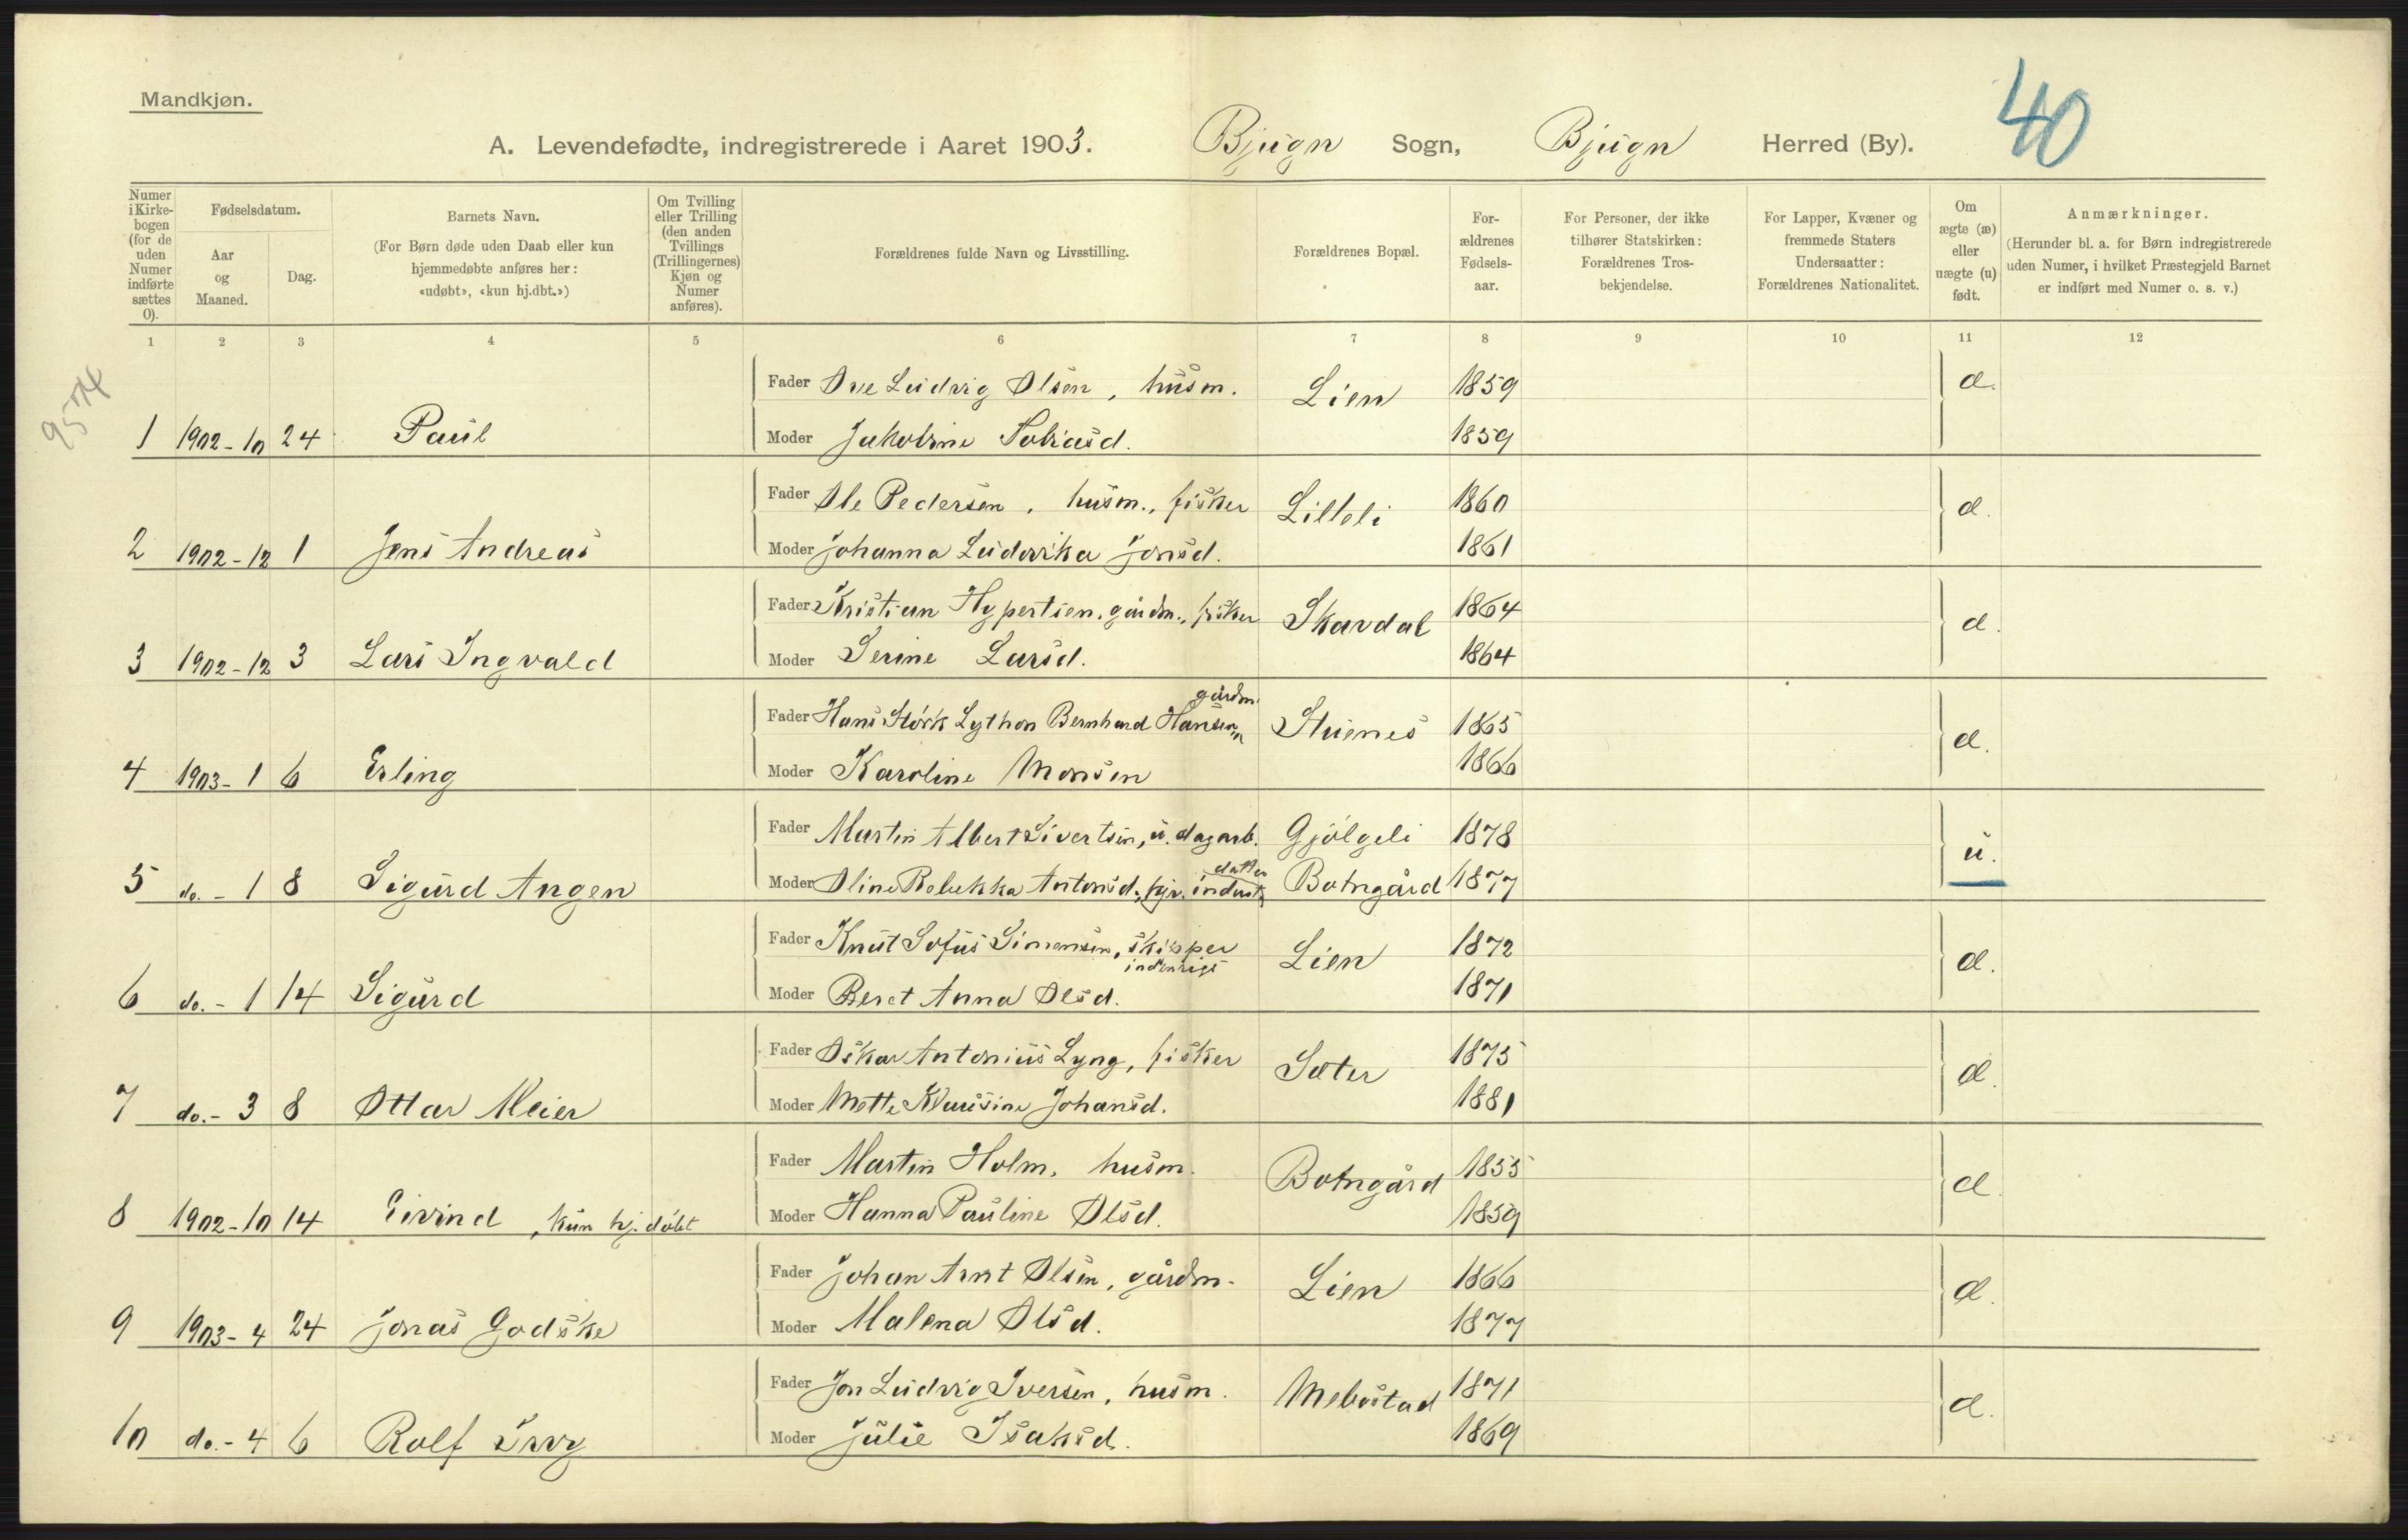 Mandkjøn.
40
A. Levendefødte, indregistrerede i Aaret 1903. Bjugn Sogn, Bjugn Herred (By).
Numer i Kirkebogen (for de uden Numer indførte sættes 0).
Fødselsdatum.
Aar og Maaned.
Dag.
Barnets Navn.
(For Børn døde uden Daab eller kun hjemmedøbte anføres her: «udøbt», «kun hj.dbt.»)
Om Tvilling eller Trilling (den anden Tvillings (Trillingernes) Kjøn og Numer anføres).
Forældrenes fulde Navn og Livsstilling.
Forældrenes Bopæl.
Forældrenes Fødselsaar.
For Personer, der ikke tilhører Statskirken: Forældrenes Trosbekjendelse.
For Lapper, Kvæner og fremmede Staters Undersaatter: Forældrenes Nationalitet.
Om ægte (æ) eller uægte (u) født.
Anmærkninger.
(Herunder bl. a. for Børn indregistrerede uden Numer, i hvilket Præstegjeld Barnet er indført med Numer o. s. v.)
1 2 3 4 5 6 7 8 9 10 11 12
Fader Ove Ludvig Olsen, husm. Lien 1859 æ.
1 1902-10 24 Paul Moder Jakobine Tobiasd. 1859
Fader Ole Pedersen, husm., fisker Lilleli 1860 æ.
2 1902-12 1 Jens Andreas Moder Johanna Ludovika Jonsd. 1861
Fader Kristian Hypertsen, gårdm., fisker Skavdal 1864 æ.
3 1902-12 3 Lars Ingvald Moder Serine Larsd. 1864
gårdm.
Fader Hans Störk Lython Bernhard Hansen, 1865 æ.
4 1903-1 6 Erling Moder Karoline Monsen 1866
Fader Martin Albert Sivertsen, u. dagarb. Gjölgeli 1878 u.
datter
5 do.-1 8 Sigurd Angen Moder Oline Rebekka Antonsd., Botngård 1877
Fader Knut Sofus Simensen, skipper Lien 1872 æ.
indenrigs
6 do.-1 14 Sigurd Moder Beret Anna Olsd. 1871
Fader Oskar Antonius Lyng, fisker Sæter 1875 æ.
7 do.-3 8 Ottar Meier Moder Mette Klausine Johansd. 1881
Fader Martin Holm, husm. Botngård 1855 æ
8 1902-10 14 Eivind, kun hj. döbt Moder Hanna Pauline Olsd. 1859
Fader Johan Arnt Olsen, gårdm. Lien 1866 æ.
9 1903-4 24 Jonas Godske Moder Malena Olsd. 1877
Fader Jon Ludvig Iversen, husm. Mebostad 1871 æ.
10 do.-4 6 Rolf Moder Julie Isaksd. 1869